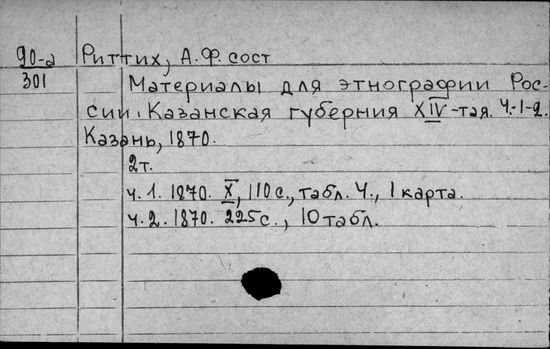 90-а Риттих, А.Ф. сост
301
Материалы для этнографии Рос-
сии. Казанская губерния XIV-тая. Ч.-1-2.
Казань, 1870.
2т.
ч. 1. 1870. X, 110 с., табл. Ч., 1 карта.
ч. 2. 1870. 225 с., 10 табл.